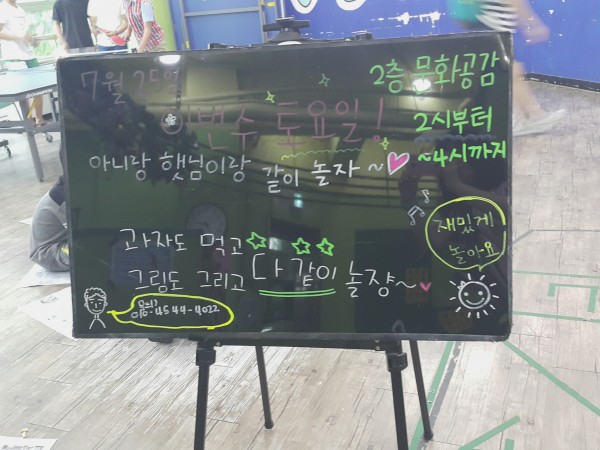 7월 25일
이번주 토요일!
2층 문화공감
2시부터
~4시까지
아니랑 햇님이랑 같이 놀자~♡
과자도 먹고
그림도 그리고 다 같이 놀쟝~♥
재밌게
놀아요
문의)
010-4544-4022